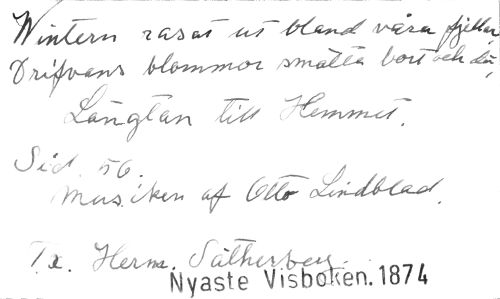 Wintern rasat ut bland våra fjellar
Drifvans blommor smälta bort och dö,
Längtan till Hemmet.
Sid. 56.
Musiken af Otto Lindblad.
Tx. Herm. Sätherberg.
Nyaste Visboken. 1874